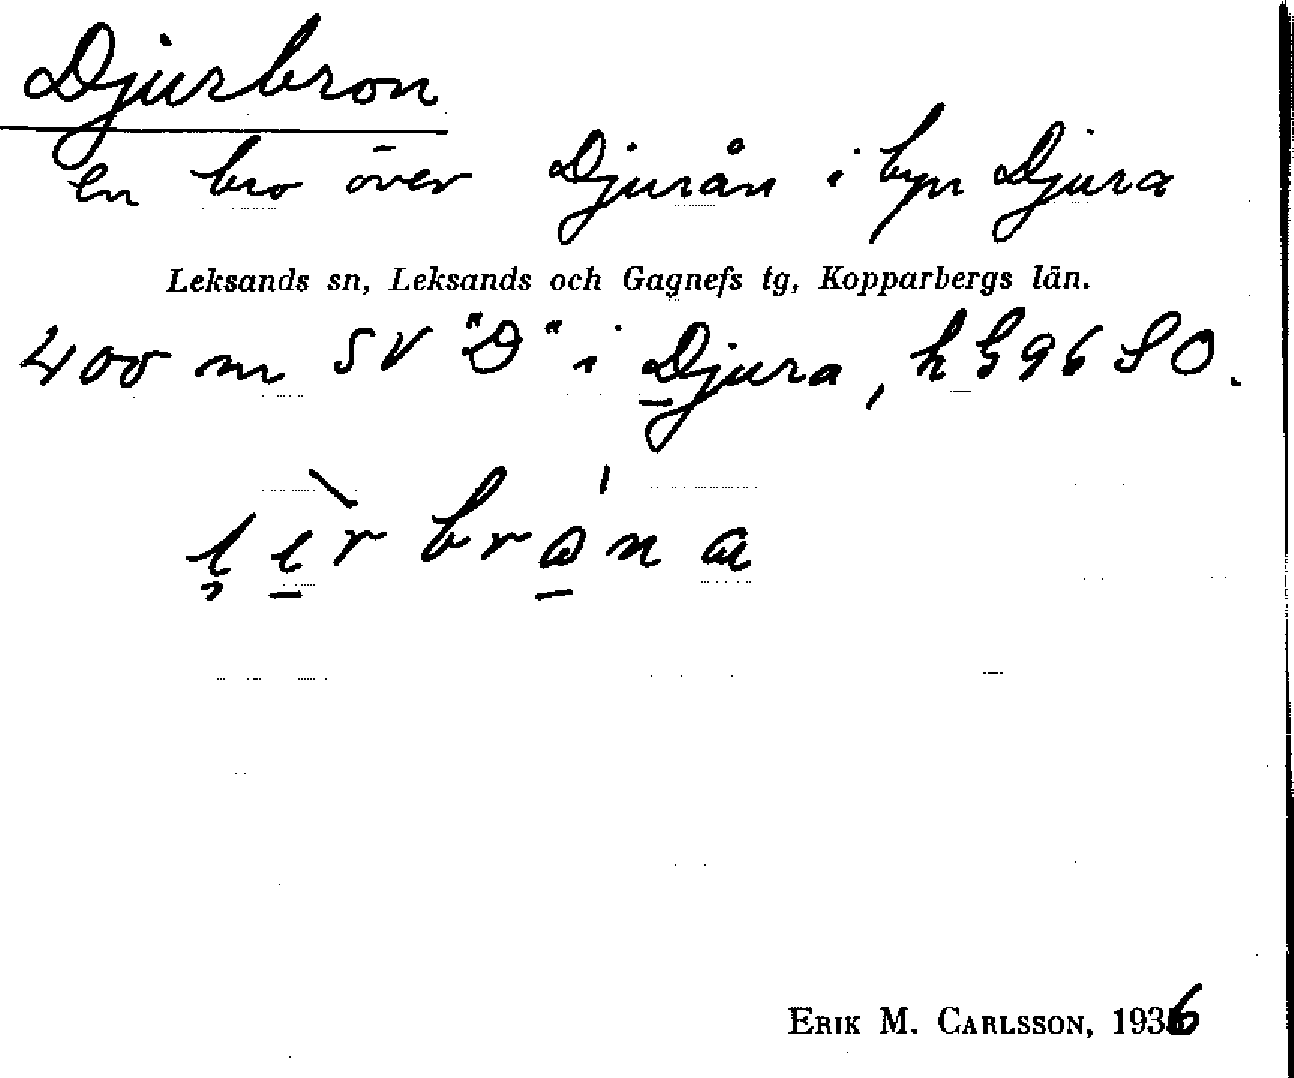 Djurbron
en bro över Djurån i byn Djura
Leksands sn, Leksands och Gagnefs tg, Kopparbergs län.
400 m SV "D" i Djura, k G96 SO.
ERIK M. CARLSSON, 1936